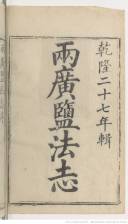 乾隆二十七年輯
兩廣鹽法志